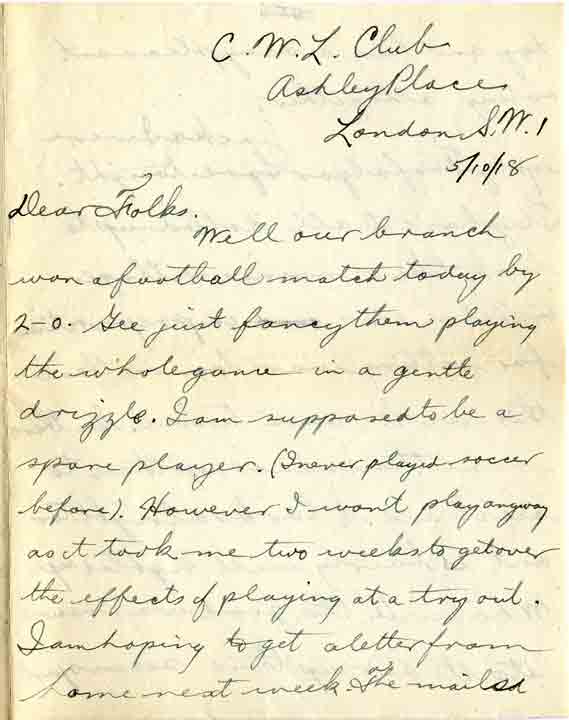 C. W. L. Club
Ashley Place
London S.W.1
5/10/18
Dear Folks.
Well our branch
won a football match today by
2-0. Gee just fancy them playing
the whole game in a gentle
drizzle. I am supposed to be a
spare player. (I never played soccer
before). However I wont play anyway
as it took me two weeks to get over
the effects of playing at a try out.
I am hoping to get a letter from
home next week. The mail